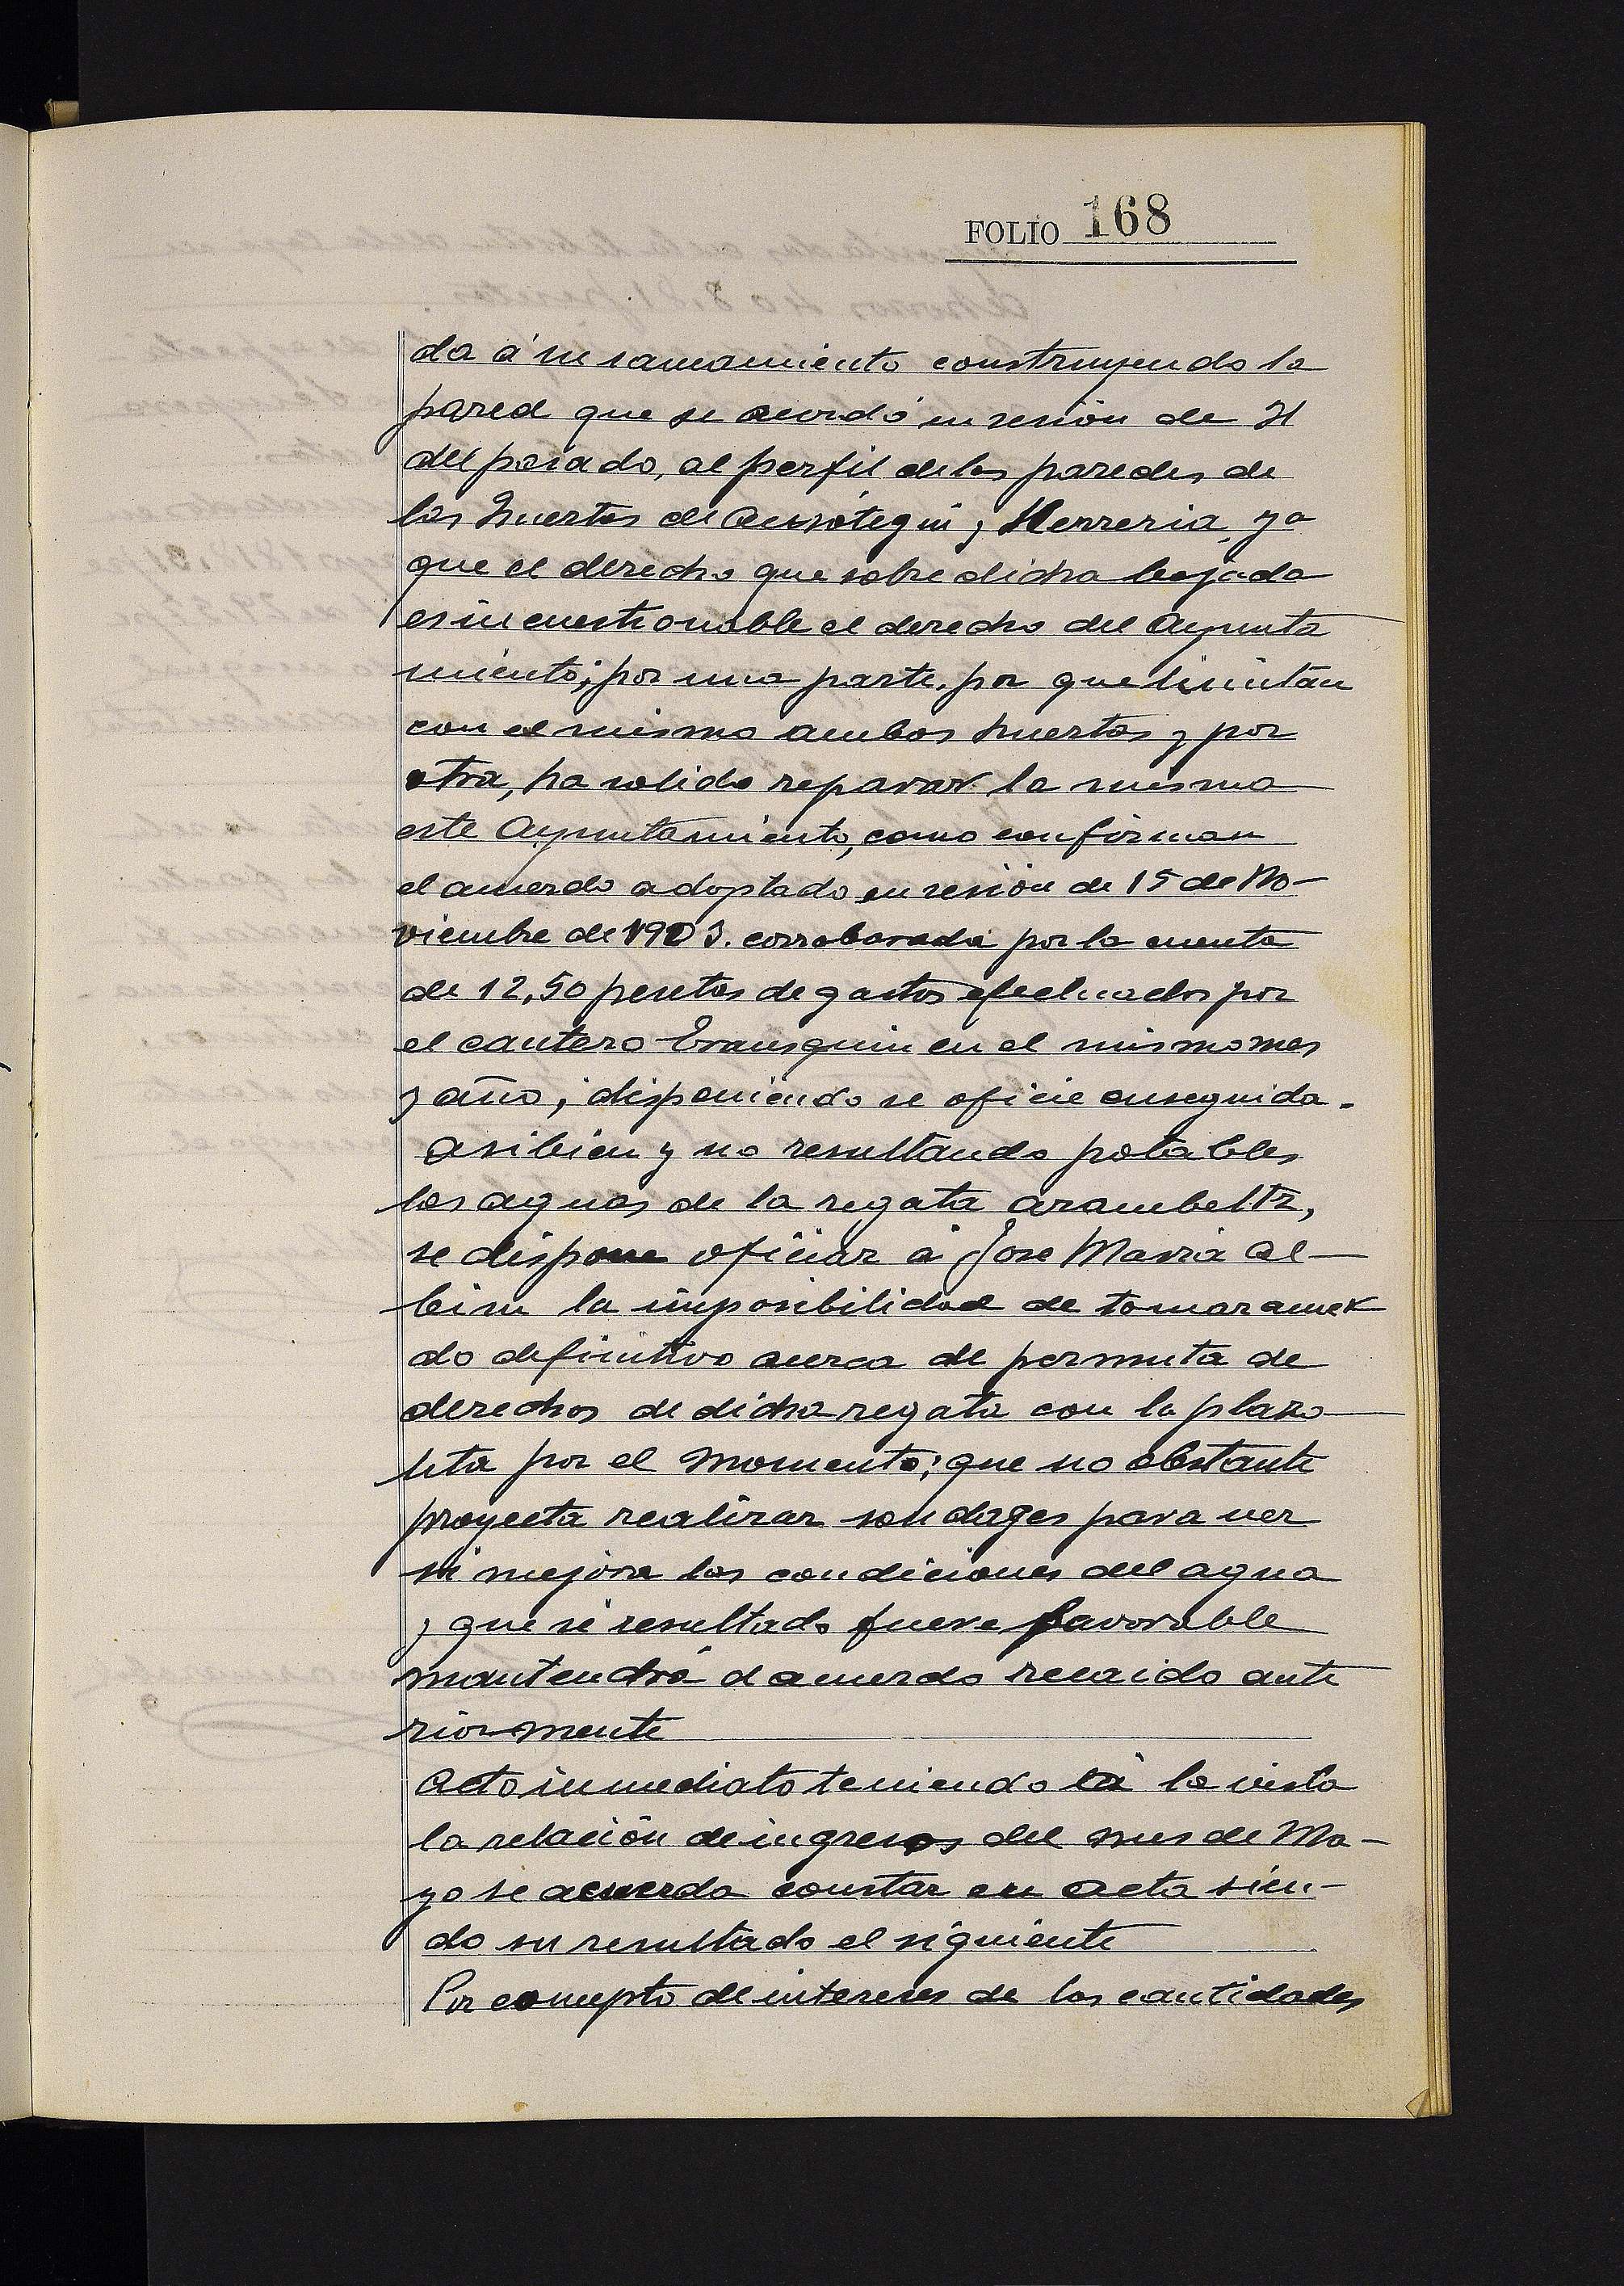 FOLIO 168
da á su saneamiento construyendo la
pared que se acordó en sesión de 31
del pasado, al perfil de las paredes de
las huertas de Aurrótegui y Herreria, ya
que el derecho que sobre dicha bajada
es incuestionable el derecho del Ayunta
miento; por una parte, por que limitan
con el mismo ambas huertas y por
otra, ha solido reparar la misma
este Ayuntamiento, como confirman
el acuerdo adoptado en sesión de 15 de No-
viembre de 1903. corroborada por la cuenta
de 12,50 pesetas de gastos efectuados por
el cantero Eransquin en el mismo mes
y año; disponiendo se oficie enseguida.
Asi bien y no resultando potables
las aguas de la regata arambeltz,
se dispone oficiar á Jose Maria Al-
bisu la imposibilidad de tomar acuer
do definitivo acerca de permuta de
derechos de dicha regata con la plazo
leta por el momento; que no obstante
proyecta realizar sondages para ver
si mejora las condiciones del agua
y que si resultado fuere favorable
mantendrá el acuerdo recaido ante
riormente
Acto inmediato teniendo á la vista
la relación de ingresos del mes de Ma-
yo se acuerda constar en acta sien-
do su resultado el siguiente
Por concepto de intereses de las cantidades